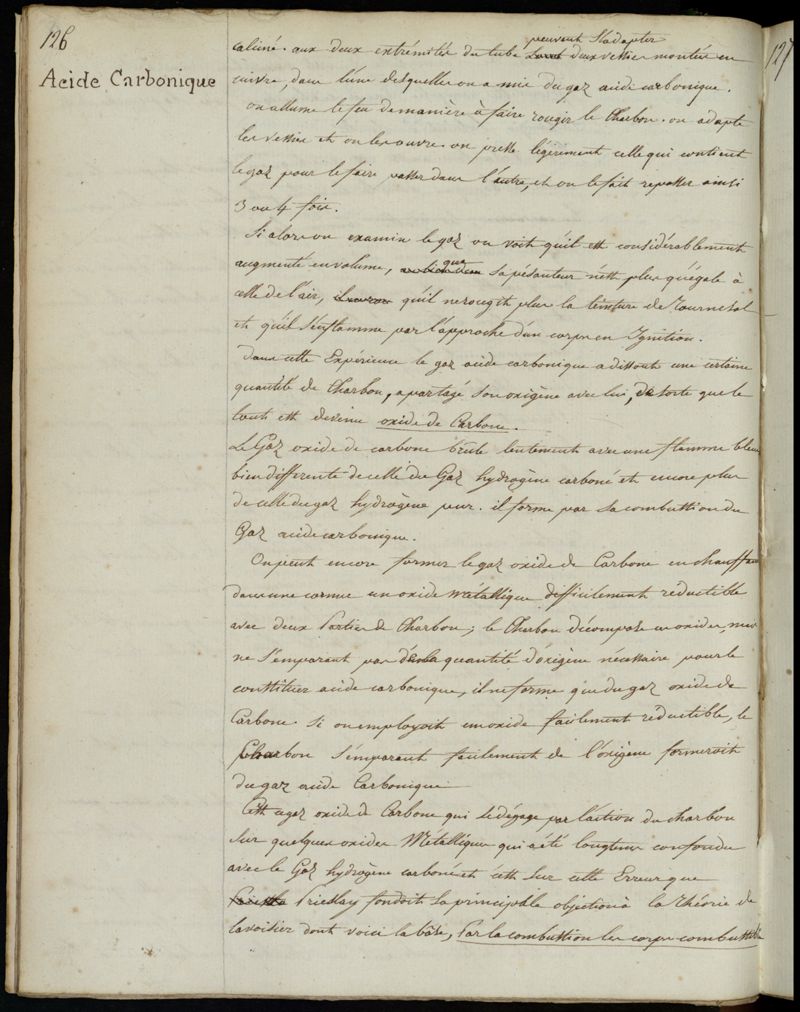 126
127
Acide Carbonique
peuvent s'adapter
calciné. aux deux extrémités du tube deux vessies montées en
cuivre, dans l'une desquelles on a mis du gaz acide carbonique.
on allume le feu de manière à faire rougir le Charbon. on adapte
les vessies et on les ouvre. on presse légèrement celle qui contient
le gaz pour le faire passer dans l'autre, et on le fait repasser ainsi
3 ou 4 fois.
Si alors on examine le gaz on voit qu'il est considérablement
que
augmenté en volume, sa pésanteur n'est plus qu'égale à
celle de l'air, qu'il ne rougit plus la teinture de Tournesol
et qu'il s'enflamme par l'approche d'un corps en Ignition.
Dans cette Expérience le gaz acide carbonique a dissout une certaine
quantité de Charbon, a partagé son oxigène avec lui, de sorte que le
tout est devenu oxide de Carbone.
Le Gaz oxide de carbone brûle lentement avec une flamme bleue
bien differente de celle du Gaz hydrogène carboné et encore plus
de celle du gaz hydrogène pur. il forme par sa combustion du
Gaz acide carbonique.
On peut encore former le gaz oxide de Carbone en chauffant
dans une cornue un oxide métallique difficilement réductible
avec deux Parties de Charbon; le Charbon décompose ces oxides, mais
ne s'emparant pas de la quantité d'oxigène nécessaire pour le
constituer acide carbonique, il ne forme que du gaz oxide de
Carbone. Si on employoit un oxide facilement réductible, le
Charbon s'emparant facilement de l'oxigène formeroit
du gaz acide Carbonique
C'est ce gaz oxide de Carbone qui se dégage par l'action du charbon
sur quelques oxides Métalliques qui a été longtems confondu
avec le Gaz hydrogène carboné et c'est sur cette Erreur que
Priestlay fondoit sa principale objection à la théorie de
Lavoisier dont voici la bâse, Par la combustion les corps combustible